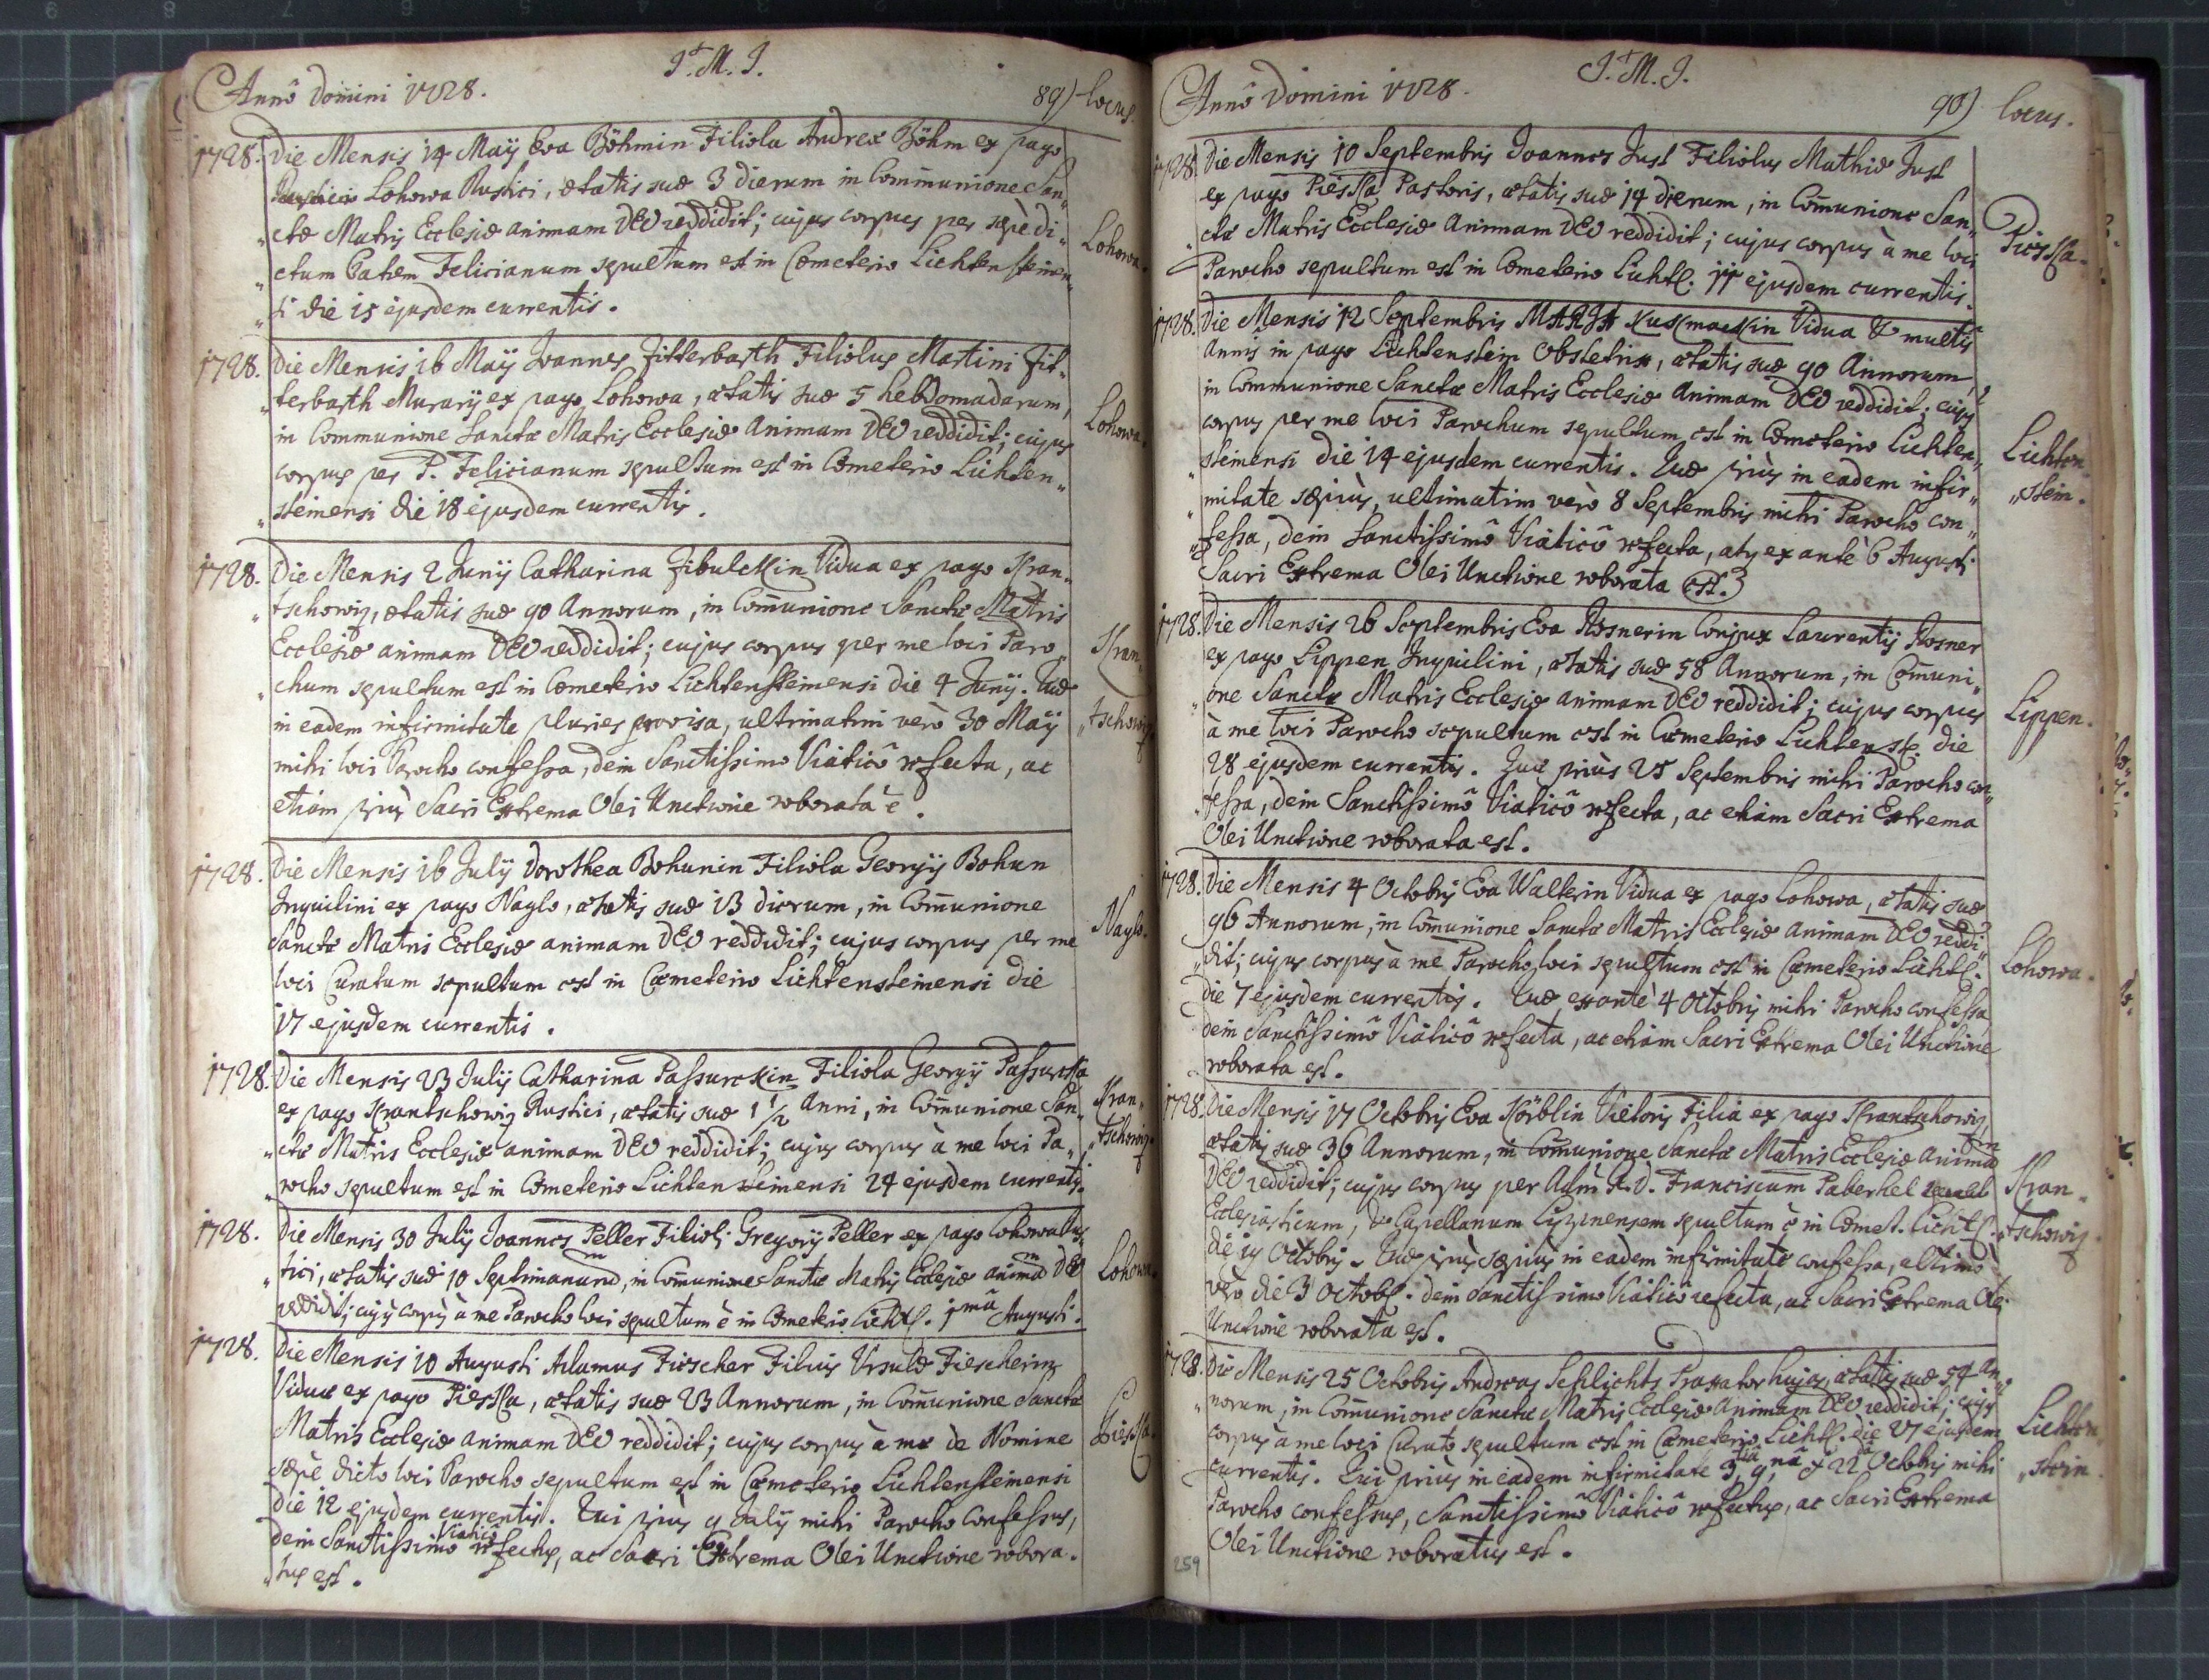 J. M. J.
Annô Domini 1728.
89) locus.
1728. Die Mensis 14 Maÿ Eva Böhmin Filiola Andreæ Böhm ex pago
Lohowa Rustici, ætatis suæ 3 dierum in Com̄unione San„
„ctæ Matris Ecclesiæ animam DEO reddidit; cujus corpus per sæpè di„
„ctum Patrem Felicianum sepultum est in Cœmeterio Lichtensteinen„
„si die 15 ejusdem currentis.
Lohowa.
1728. Die Mensis 16 Maÿ Joannes Zitterbarth Filiolus Martini Zit„
„terbarth Murarÿ ex pago Lohowa, ætatis suæ 5 hebdomadarum,
in Communione Sanctæ Matris Ecclesiæ Animam DEO reddidit; cujus
corpus per P. Felicianum sepultum est in Cœmeterio Lichten„
„steinensi die 18 ejusdem currentis.
Lohowa.
1728. Die Mensis 2 Junÿ Catharina Zibulckin Vidua ex pago Kran„
„tschowiz, ætatis suæ 90 Annorum, in Com̄unione Sanctæ Matris
Ecclesiæ animam DEO reddidit; cujus corpus per me loci Paro„
„chum sepultum est in Cœmeterio Lichtensteinensi die 4 Junÿ. Quæ
in eadem infirmitate pluries provisa, ultimatim verò 30 Maÿ
mihi loci Parocho confessa, dein Sanctissimo Viaticô refecta, ac
etiam priùs Sacri Extrema Olei Unctione roborata ẽ.
Kran„
„tschowiz
1728. Die Mensis 16 Julÿ Dorothea Bohunin Filiola Georgÿ Bohun
Inquilini ex pago Naglo, ætatis suæ 13 dierum, in Com̄unione
Sanctæ Matris Ecclesiæ animam DEO reddidit; cujus corpus per me
loci Curatum sepultum est in Cœmeterio Lichtensteinensi die
17 ejusdem currentis.
Naglo.
1728. Die Mensis 23 Julÿ Catharina Passureckin Filiola Georgÿ
ex pago Krantschowiz Rustici, ætatis suæ 1 1/2 Anni, in Com̄unione San„
„ctæ Matris Ecclesiæ animam DEO reddidit; cujus corpus à me loci Pa„
„rocho sepultum est in Cœmeterio Lichtensteinensi 24 ejusdem currentis.
Kran„
„tschowiz.
1728. Die Mensis 30 Julÿ Joannes Peller Filiolus Gregorÿ Peller ex pago Lohowa Rus„
„tici, ætatis suæ 10 Septimanarum, in Com̄unione Sanctæ Matris Ecclesiæ animam DEO
reddidit; cujus corpus à me Parocho loci sepultum ẽ in Cœmeterio Lichtl. 1mâ Augusti.
Lohowa.
1728. Die Mensis 10 Augusti Adamus Fiescher Filius Ursulæ Fiescherin
Viduæ ex pago Pieska, ætatis suæ 23 Annorum, in Com̄unione Sanctæ
Matris Ecclesiæ animam DEO reddidit; cujus corpus à me de Nomine
sæpè dicto loci Parocho sepultum est in Cœmeterio Lichtensteinensi
die 12 ejusdem currentis. Qui priùs 9 Julÿ mihi Parocho Confessus,
dein Sanctissimo Viaticô refectus, ac Sacri Extrema Olei Unctione robora„
„tus est.
Pieska.
J. M. J.
Annô Domini 1728.
90) locus.
1728. Die Mensis 10 Septembris Joannes Just Filiolus Mathiæ Just
ex pago Pieska Pastoris, ætatis suæ 14 dierum, in Com̄unione San„
„ctæ Matris Ecclesiæ Animam DEO reddidit; cujus corpus à me loci
Parocho sepultum est in Cœmeterio Lichtl. 11 ejusdem currentis.
Pieska.
1728. Die Mensis 12 Septembris MARIA Kuckmackin Vidua & multis
Annis in pago Lichtenstein Obstetrix, ætatis suæ 90 Annorum,
in Communione Sanctæ Matris Ecclesiæ Animam DEO reddidit; cujus
corpus per me loci Parochum sepultum est in Cœmeterio Lichten„
„steinensi die 14 ejusdem currentis. Quæ priùs in eadem infir„
„mitate sæpiùs, ultimatim verò 8 Septembris mihi Parocho con„
„fessa, dein Sanctissimô Viaticô refecta, atq ex antè 6 Augusti
Sacri Extrema Olei Unctione roborata est.
Lichten„
„stein.
1728. Die Mensis 26 Septembris Eva Rosnerin Conjux Laurentÿ Rosner
ex pago Lippen Inquilini, ætatis suæ 58 Annorum, in Com̄uni„
„one Sanctæ Matris Ecclesiæ animam DEO reddidit; cujus corpus
à me loci Parocho sepultum est in Cœmeterio Lichtenst. die
28 ejusdem currentis. Quæ priùs 25 Septembris mihi Parocho con„
„fessa, dein Sanctissimô Viaticô refecta, ac etiam Sacri Extrema
Olei Unctione roborata est.
Lippen.
1728. Die Mensis 4 Octobris Eva Walterin Vidua ex pago Lohowa, ætatis suæ
96 Annorum, in Com̄unione Sanctæ Matris Ecclesiæ animam DEO reddi„
„dit; cujus corpus à me Parocho loci sepultum est in Cœmeterio Lichtl.
die 7 ejusdem currentis. Quæ ex antè 4 Octobris mihi Parocho confessa,
dein Sanctissimô Viaticô refecta, ac etiam Sacri Extrema Olei Unctione
roborata est.
Lohowa.
1728. Die Mensis 17 Octobris Eva Körblin Vietoris Filia ex pago Krantschowiz,
ætatis suæ 36 Annorum, in Com̄unione Sanctæ Matris Ecclesiæ animam
DEO reddidit; cujus corpus per Adm R. D. Franciscum Paberhel
Ecclesiasticum, Capellanum sepultum ẽ in Cœmet. Lichtl.
die 19 Octobris. Quæ priùs sæpiùs in eadem infirmitate confessa, ultimò
verò die 3 Octobl. dein Sanctissimo Viatico refecta, ac Sacri Extrema Olei
Unctione roborata est.
Kran„
„tschowiz.
1728. Die Mensis 25 Octobris Andreas Schlichts Braxator hujas, ætatis suæ 54 An„
„norum, in Com̄unione Sanctæ Matris Ecclesiæ Animam DEO reddidit; cujus
corpus à me loci Curato sepultum est in Cœmeterio Lichtl. die 27 ejusdem
currentis. Qui priùs in eadem infirmitate 3tiâ, 9nâ & 22dâ Octobris mihi
Parocho confessus, Sanctissimô Viaticô refectus, ac Sacri Extrema
Olei Unctione roboratus est.
Lichten„
„stein.
259